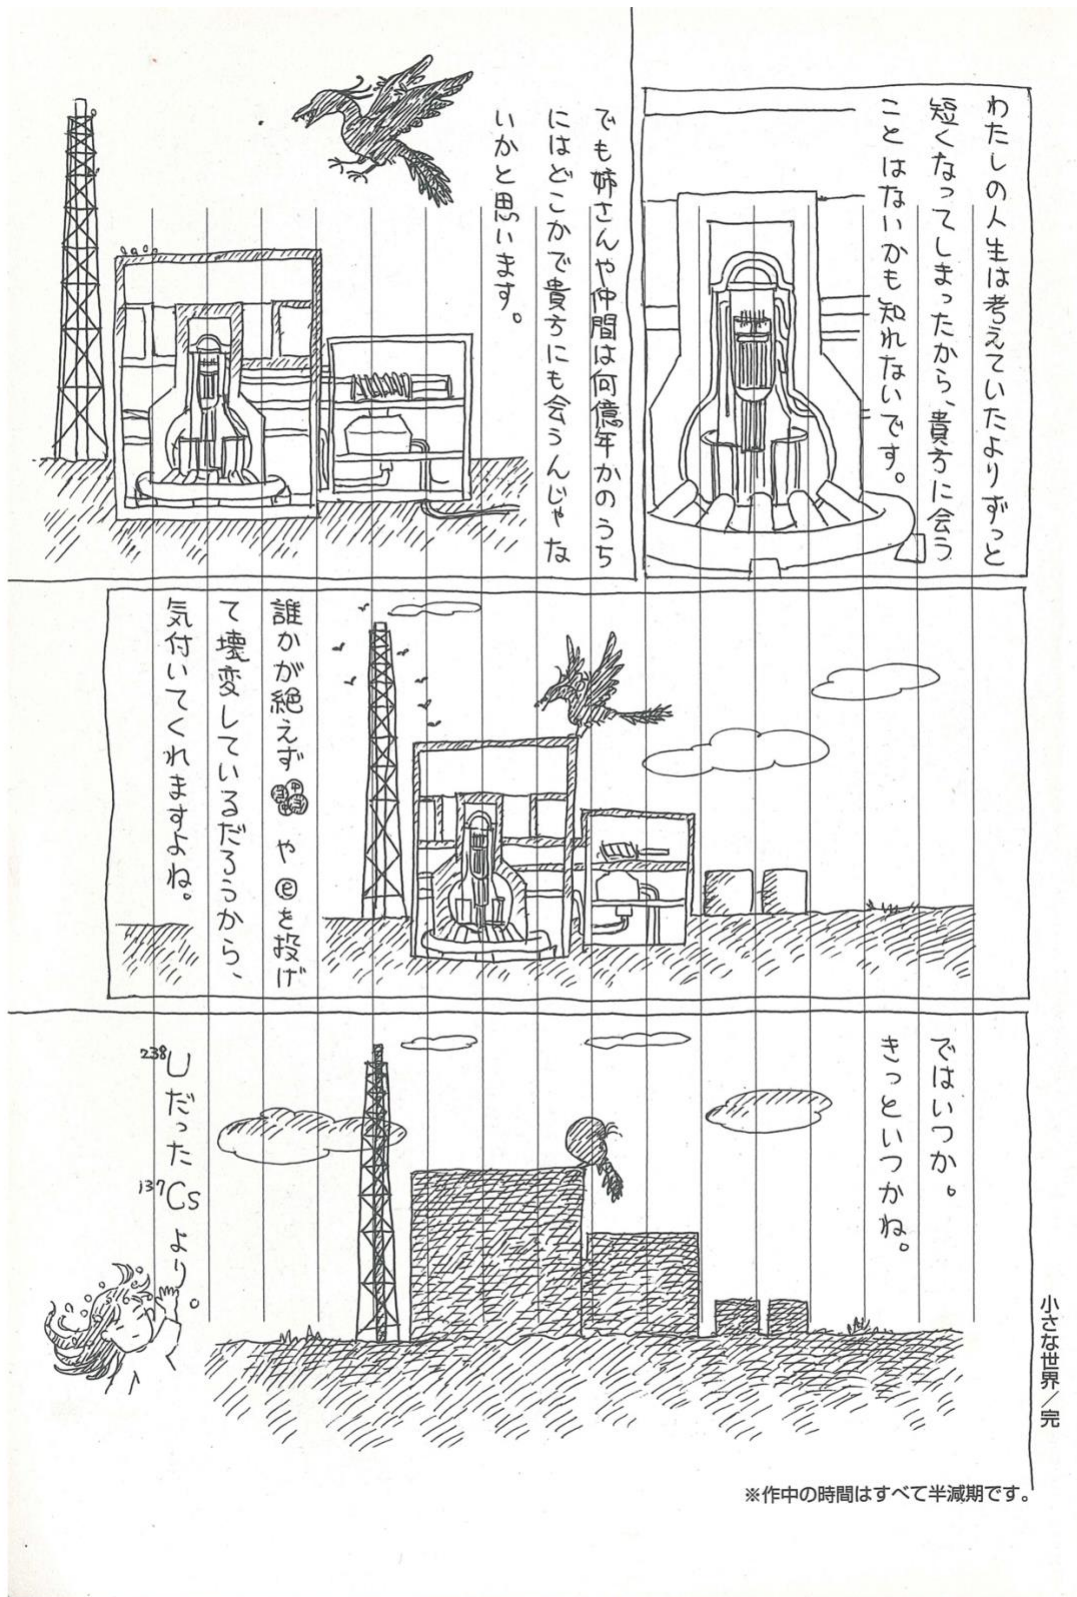 わたしの人生は考えていたよりずっと
短くなってしまったから、貴方に会う
ことはないかも知れないです。
でも姉さんや仲間は何億年かのうち
にはどこかで貴方にも会うんじゃな
いかと思います。
誰かが絶えず 中陽中陽 や ⓔを投げ
て壊変しているだろうから、
気付いてくれますよね。
ではいつか。
きっといつかね。
²³⁸Uだった
¹³⁷Csより。
小さな世界/完
※作中の時間はすべて半減期です。